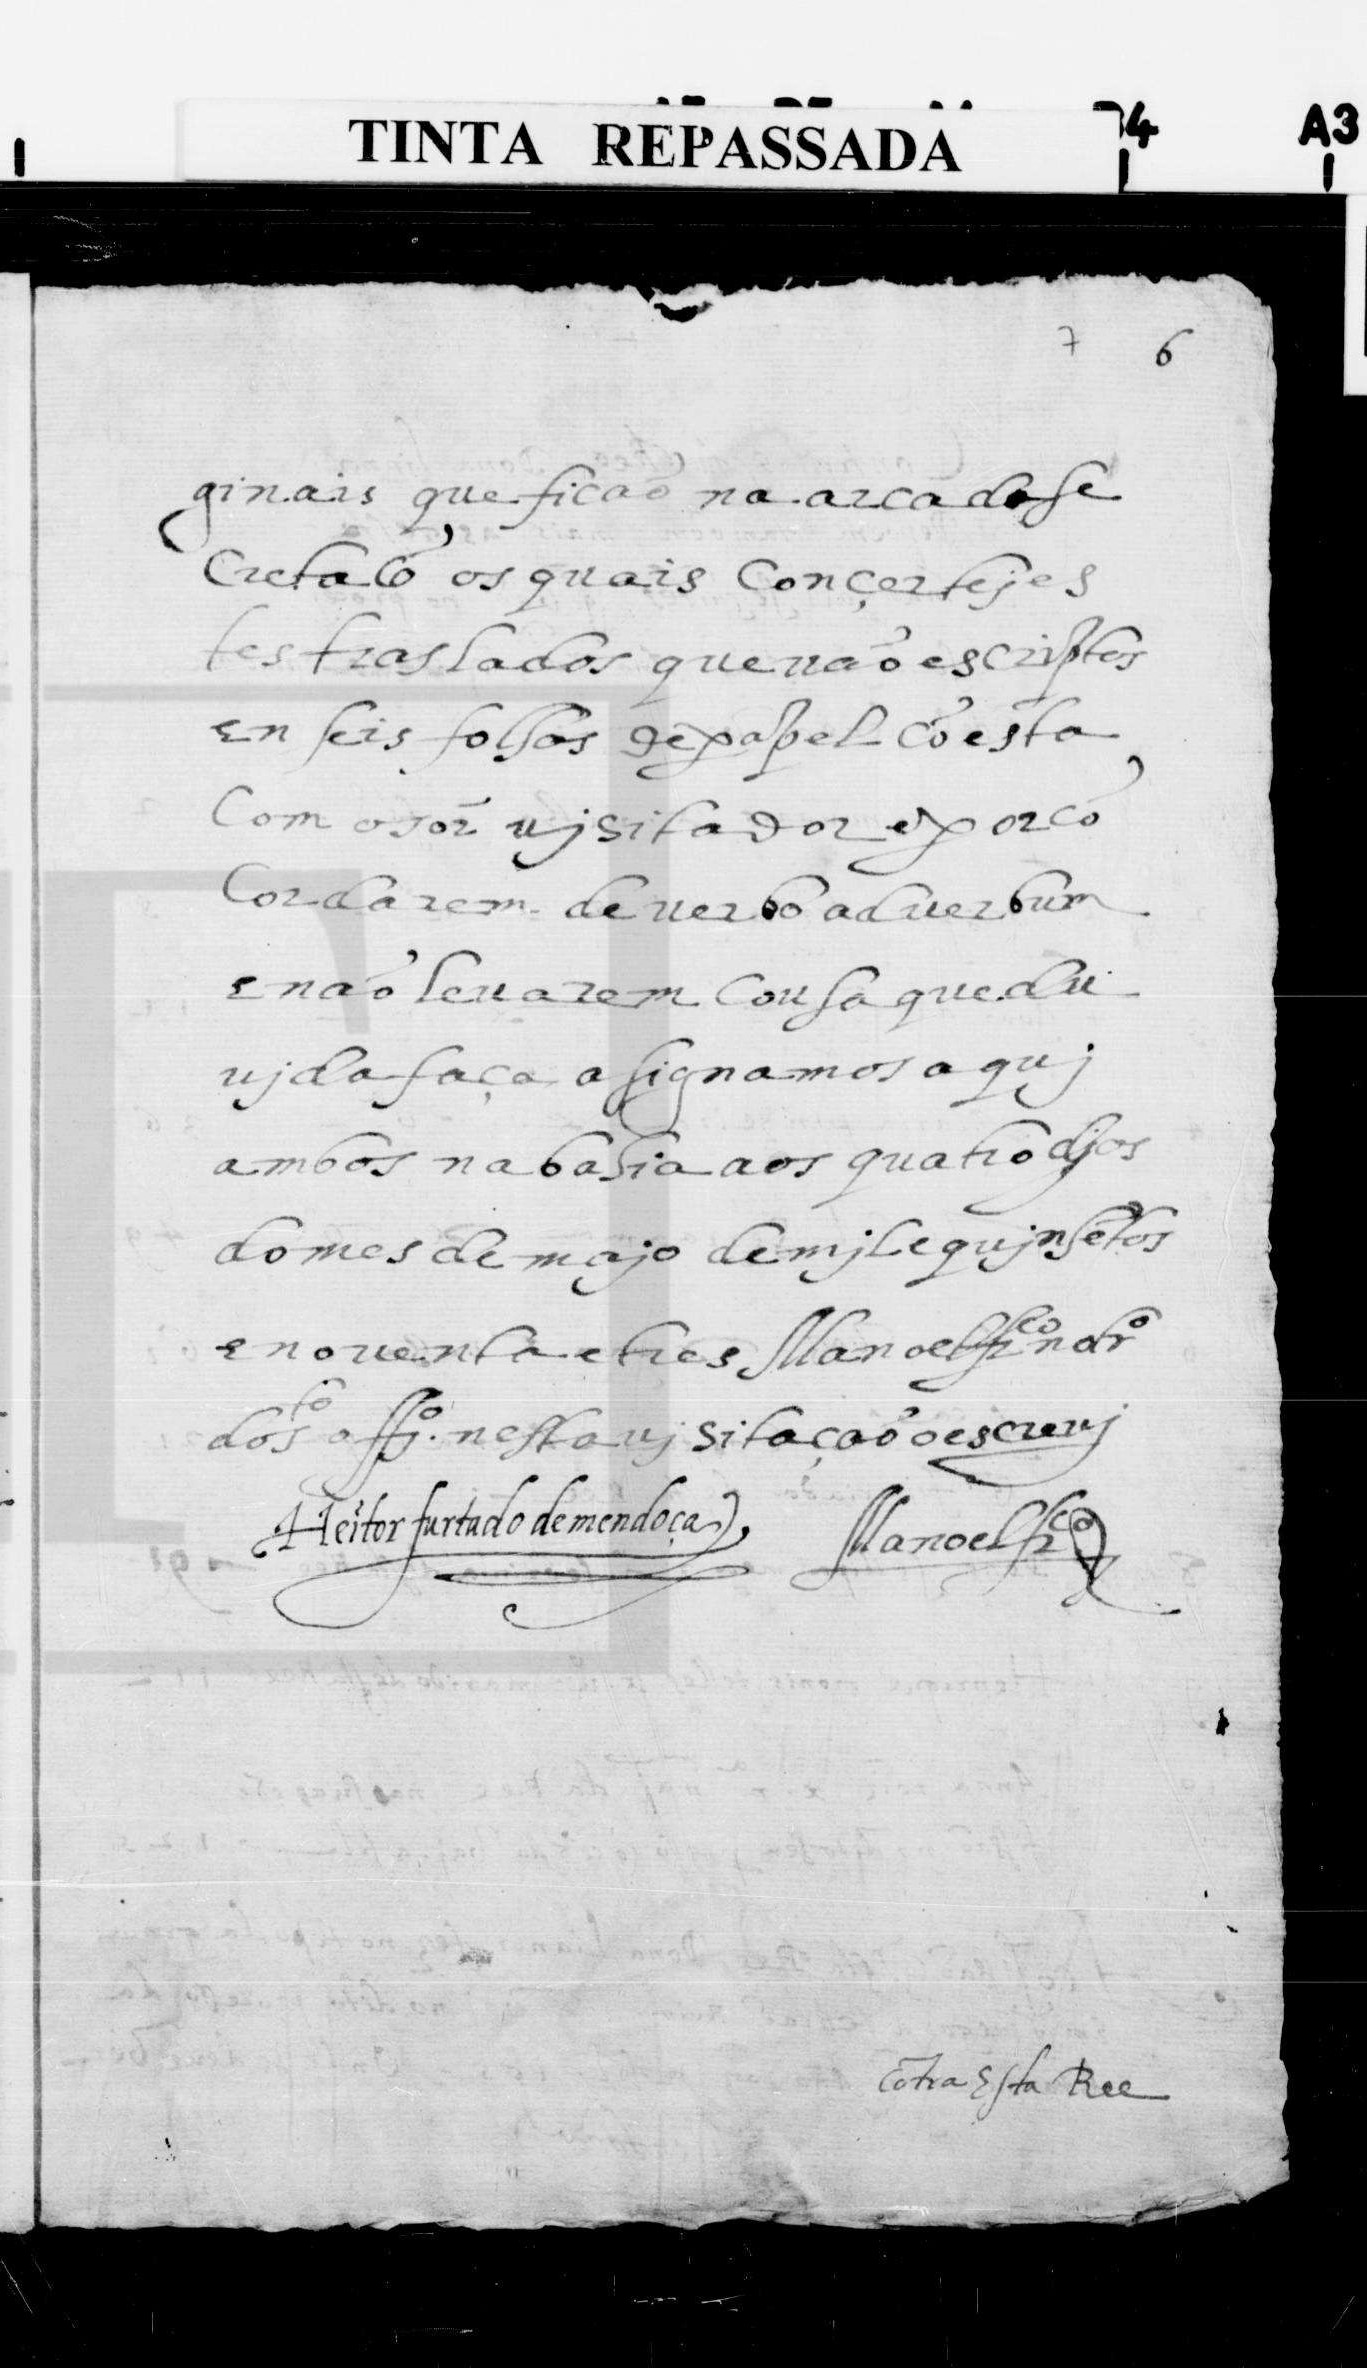 TINTA REPASSADA
4
A3
7 6
ginais que ficão na arca do se
creta cõ os quais conçertej es
tes traslados que uão escriptos
en seis folhas de papel cõ esta
com o sõr ujsitador e por cõ
cordarem de uerbo ad uerbum
e não leuarem cousa que du
ujda faça asignamos aquj
ambos na bahia aos quatro djas
do mes de majo de mjl e qujnhẽtos
e nouenta e tres Manoel frco notro
do sto offo. nesta ujsitação o escreuj
Heitor furtado de mendoça Manoel frco
Cõtra Esta Ree